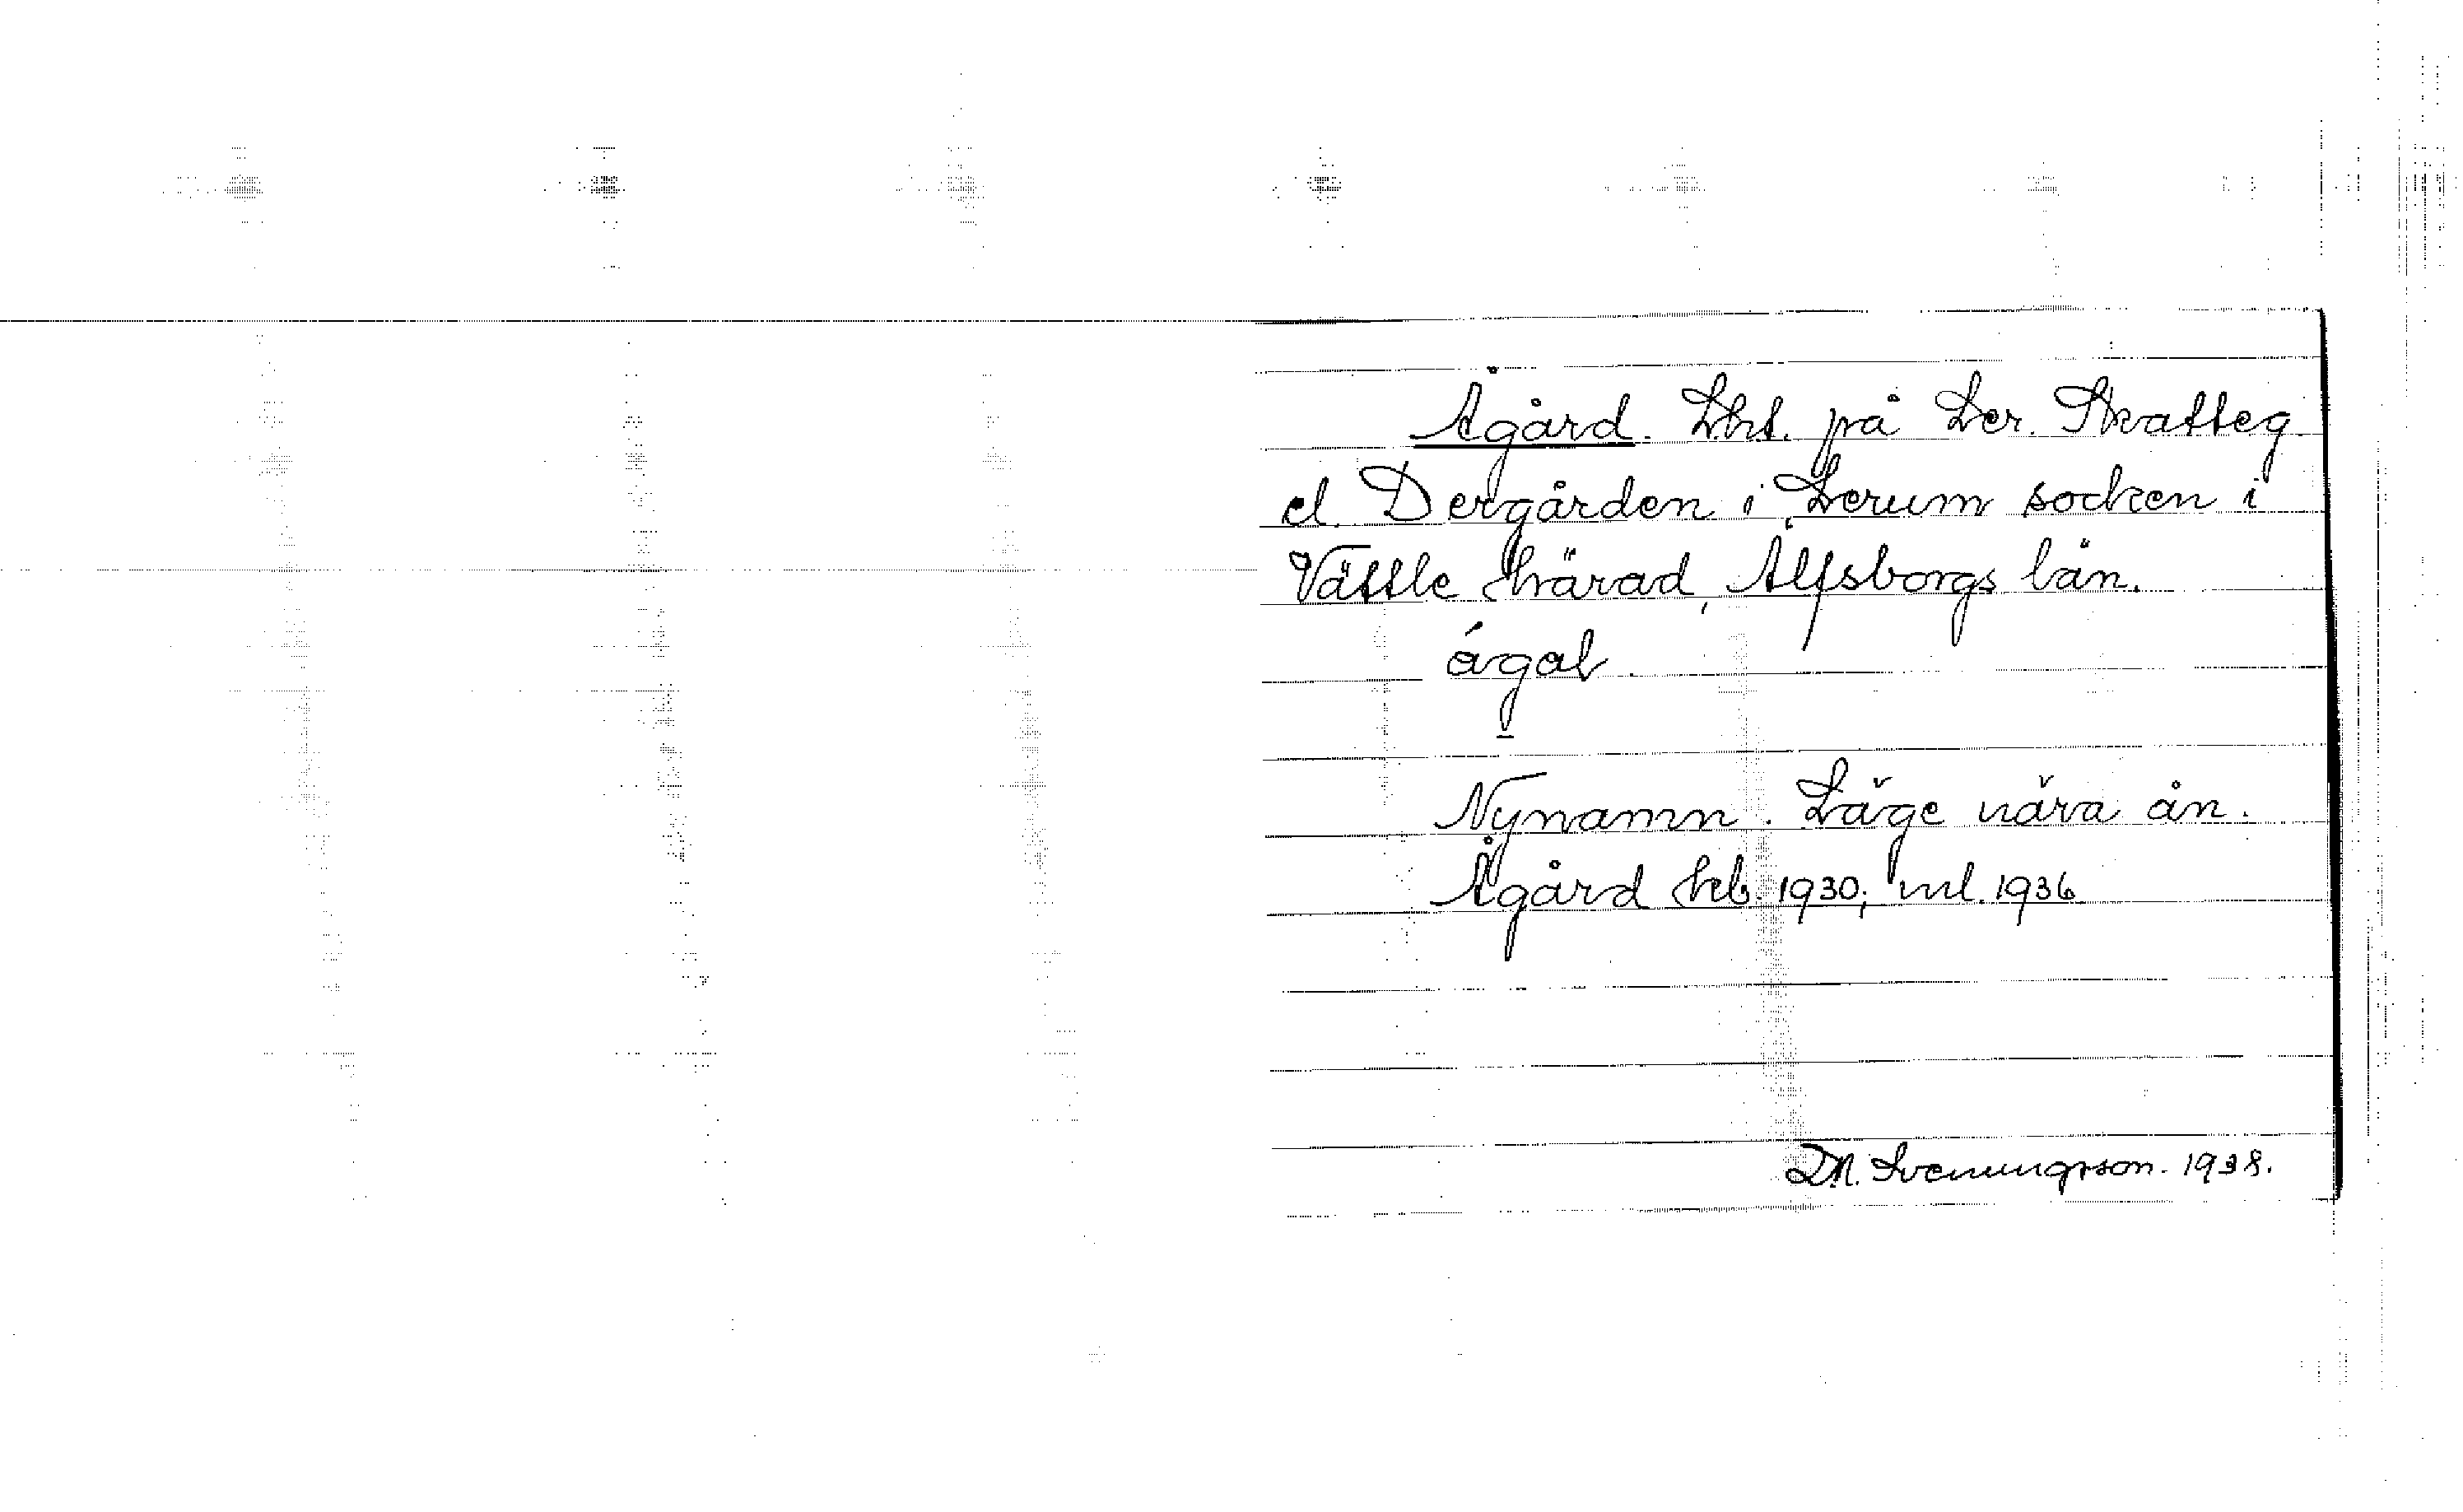 Ågård. Lht. på Ler. Skatteg
el. Dergården i Lerum socken i
Vättle härad, Älfsborgs län.
ágaḷ
Nynamn. Läge nära ån.
Ågård hb. 1930; ml. 1936
D.N. Svenningsson. 1938.